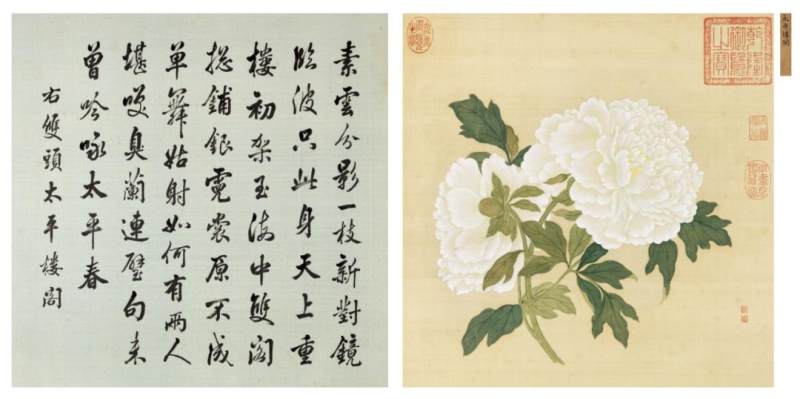 素雲分影一枝新對鏡
臨波只此身天上重
樓初架玉海中雙閣
總鋪銀霓裳原不成
單舞姑射如何有兩人
堪笑臭蘭連璧句未
曾吟咏太平春
右雙頭太平樓閣
乾隆御覽之寶